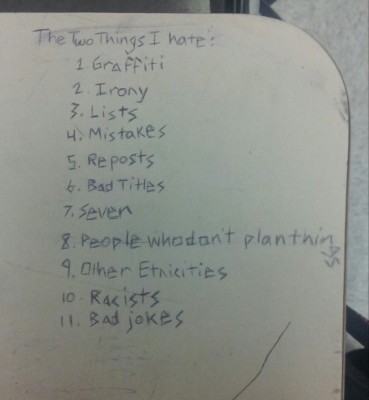 The Two Things I hate:
1 Graffiti
2. Irony
3. Lists
4. Mistakes
5. Reposts
6. Bad Titles
7. Seven
8. People who don't plan things
9. Other Etnicities
10. Racists
11. Bad jokes